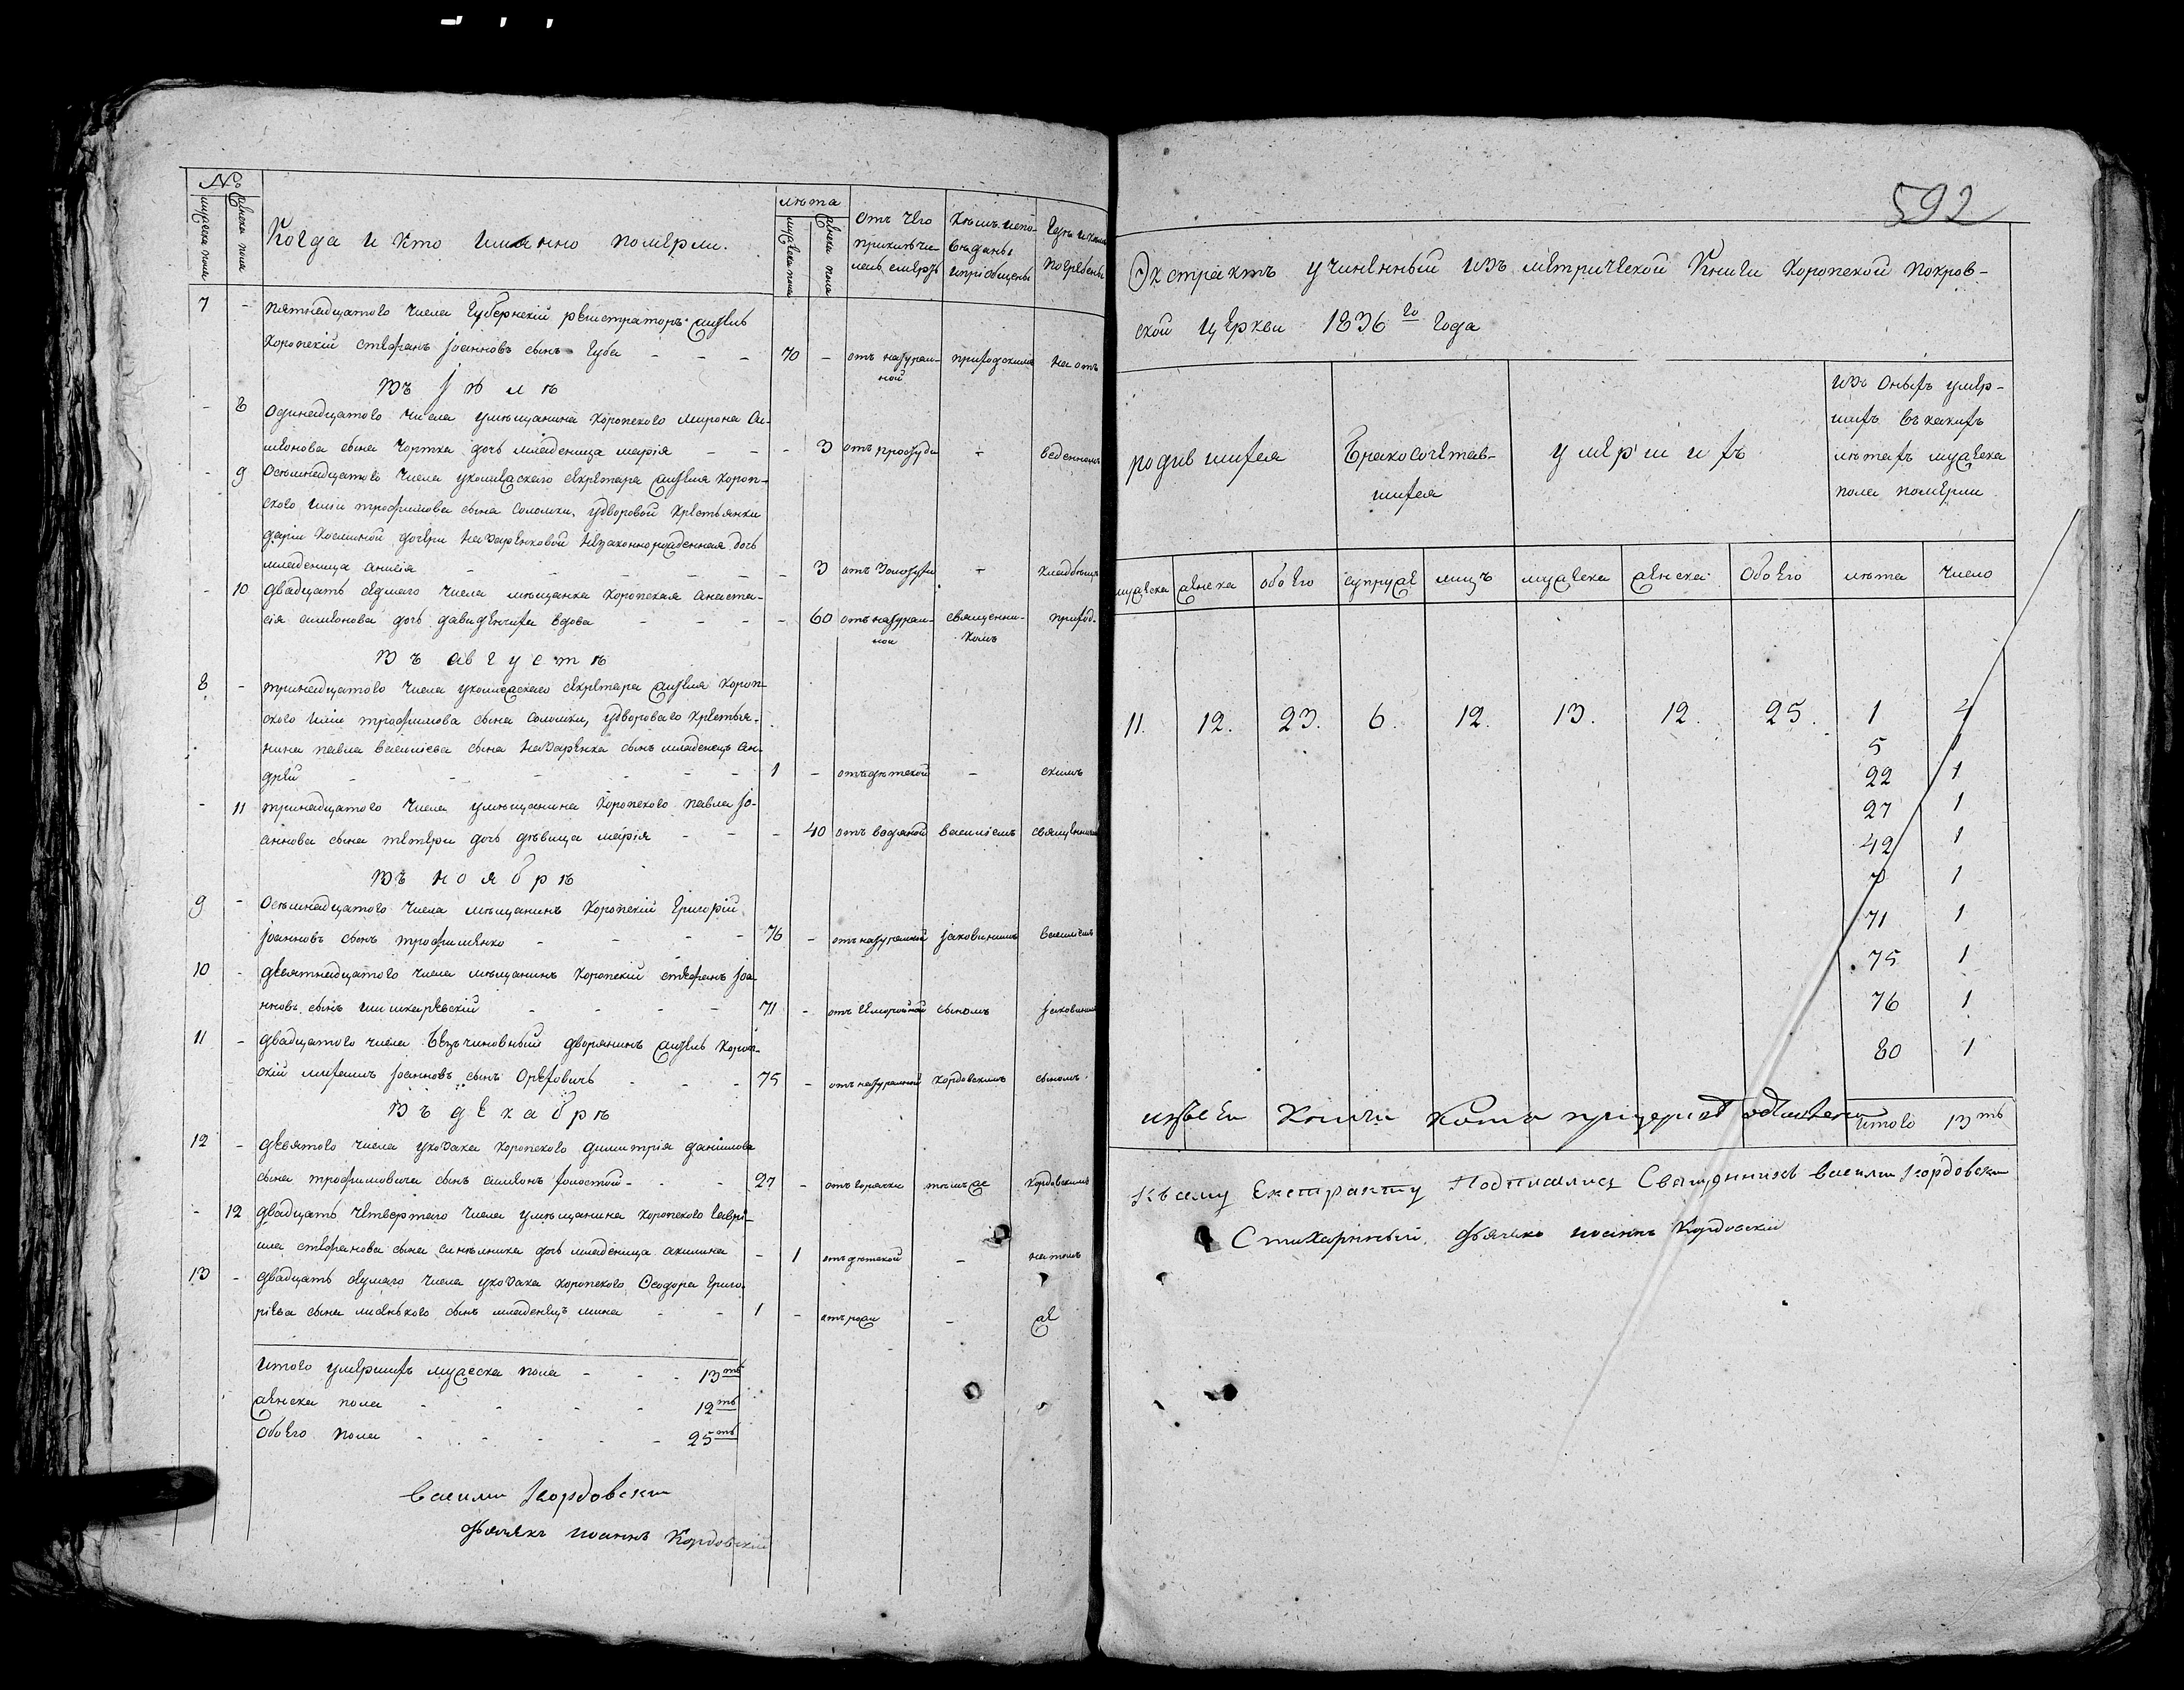 №
мужеска пола
женска пола
Когда и кто имянно померли.
лѣта
мужеска пола
женска пола
Отъ чего приключилась смерть
Кѣмъ исповѣданы и пріобщены
Гдѣ и кѣмъ погребены
7 - пятнадцатого числа Губернскій регистраторъ жытль
коропскій стефанъ Іоанновъ сынъ Губа - - - 70 - отъ натураль- приходскимъ на отъ
ной
Въ Іюлѣ
- 8 Одинадцатого числа умѣщанина коропского мирона Си-
меонова сына Чортка дочь младеница марія - - - 3 отъ простуды - веденномъ
- 9 Осьмнадцатого числа
ского трофимова сына Соломки, удворовой крестьянки
дарiи косминой дочери Назаренковой незаконнорожденная дочь
младеница анисія - - - - - 3 отъ золотухи - кладбищѣ
- 10 двадцать седмаго числа мѣщанка коропская анаста-
сія симеонова дочь давиденчиха вдова - - - - 60 отъ натураль- священни- приход-
ной комъ
Въ августѣ
8 - тринадцатого числа
ского трофимова сына Соломки, удворового крестья-
нина павла василіева сына Назаренка сынъ младенецъ ан-
дрей - - - - - - 1 - отъ дѣтской - скимъ
- 11 тринадцатого числа умѣщанина коропского павла Іо-
аннова сына тетери дочь дѣвица марія - - - 40 отъ водяной василіемъ священникомъ
Въ ноябрѣ
9 - Осьмнадцатого числа мѣщанинъ коропскій Григорій
Іоанновъ сынъ трофименко - - - - 76 - отъ натуральной Іаковинымъ василіемъ
10 - девятнадцатого числа мѣщанинъ коропскій стефанъ Іоа-
нновъ сынъ шишкаревскій - - - - 71 - сыномъ Іаковинымъ
11 - двадцатого числа безчиновный дворянинъ жытль короп-
скій михаилъ Іоанновъ сынъ Ореховичъ - - - 75 - отъ натуральной Кордовскимъ сыномъ
Въ декабрѣ
12 - девятого числа укозака коропского димитрія даніилова
сына трофимовича сынъ симеонъ холостой - - - 27 - отъ горячки томъже Кордовскимъ
- 12 двадцать четвертаго числа умѣщанина коропского Гаврі-
ила стефанова сына синѣльника дочь младеница акилина - 1 отъ дѣтской - на томъ
13 - двадцать седмаго числа укозака коропского Ѳеодора Григо-
ріева сына сынъ младенецъ мина - - 1 - отъ рожи - же
Итого умершихъ мужеска пола - - - 13ть
женска пола - - - - 12ть
обоего пола - - - - - 25ть
Василий Кордовский
Дьячекъ Иоаннъ Кордовскій
592
Экстрактъ учиненный изъ метрической Книги Коропской покров-
ской церкви 1836го Года
родившихся
Бракосочетав-
шихся
умершихъ
изъ оныхъ умер-
шихъ въ какихъ
лѣтахъ мужеска
пола померли
мужеска женска обоего супруже лицъ мужеска женска Обоего лѣта число
11. 12. 23. 6. 12. 13. 12. 25. 1 4
5 1
22 1
27 1
42 1
1
71 1
75 1
76 1
80 1
Итого 13ть
Къ сему Екстракту Подписался Священникъ Василий Кордовски
Стихарный дьячекъ Иоаннъ Кордовскій